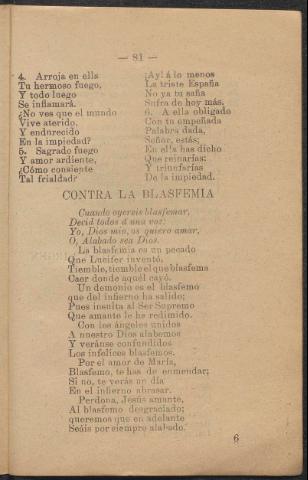 — 81 —
4. Arroja en ella
Tu hermoso fuego,
Y todo luego
Se inflamará.
¿No ves que el mundo
Vive aterido,
Y endurecido
En la impiedad?
5. Sagrado fuego
Y amor ardiente,
¿Cómo consiente
Tal frialdad?
¡Ay! á lo menos
La triste España
No ya tu saña
Sufra de hoy más.
6. A ella obligado
Con tu empeñada
Palabra dada,
Señor, estás;
En ella has dicho
Que reinarías;
Y triunfarías
De la impiedad.
CONTRA LA BLASFEMIA
Cuando oyereis blasfemar,
Decid todos á una voz:
Yo, Dios mio, os quiero amar,
O, Alabado sea Dios.
La blasfemia es un pecado
Que Lucifer inventó,
Tiemble, tiemble el que blasfema
Caer donde aquél cayó.
Un demonio es el blasfemo
que del infierno ha salido;
Pues insulta al Ser Supremo
Que amante le ha redimido.
Con los ángeles unidos
A nuestro Dios alabemos
Y veránse confundidos
Los infelices blasfemos.
Por el amor de María,
Blasfemo, te has de enmendar;
Si no, te verás un día
En el infierno abrasar.
Perdona, Jesús amante,
Al blasfemo desgraciado;
queremos que en adelante
Seáis por siempre alabado.
6